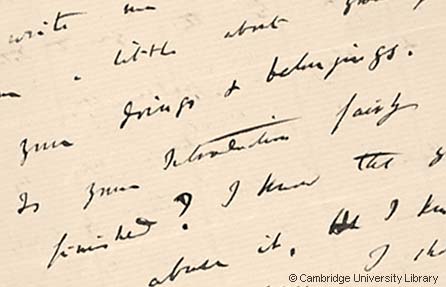 write me
a little about
your doings & belongings.
Is your Introduction fairly
finished? I know
abuse it. I
I
© Cambridge University Library